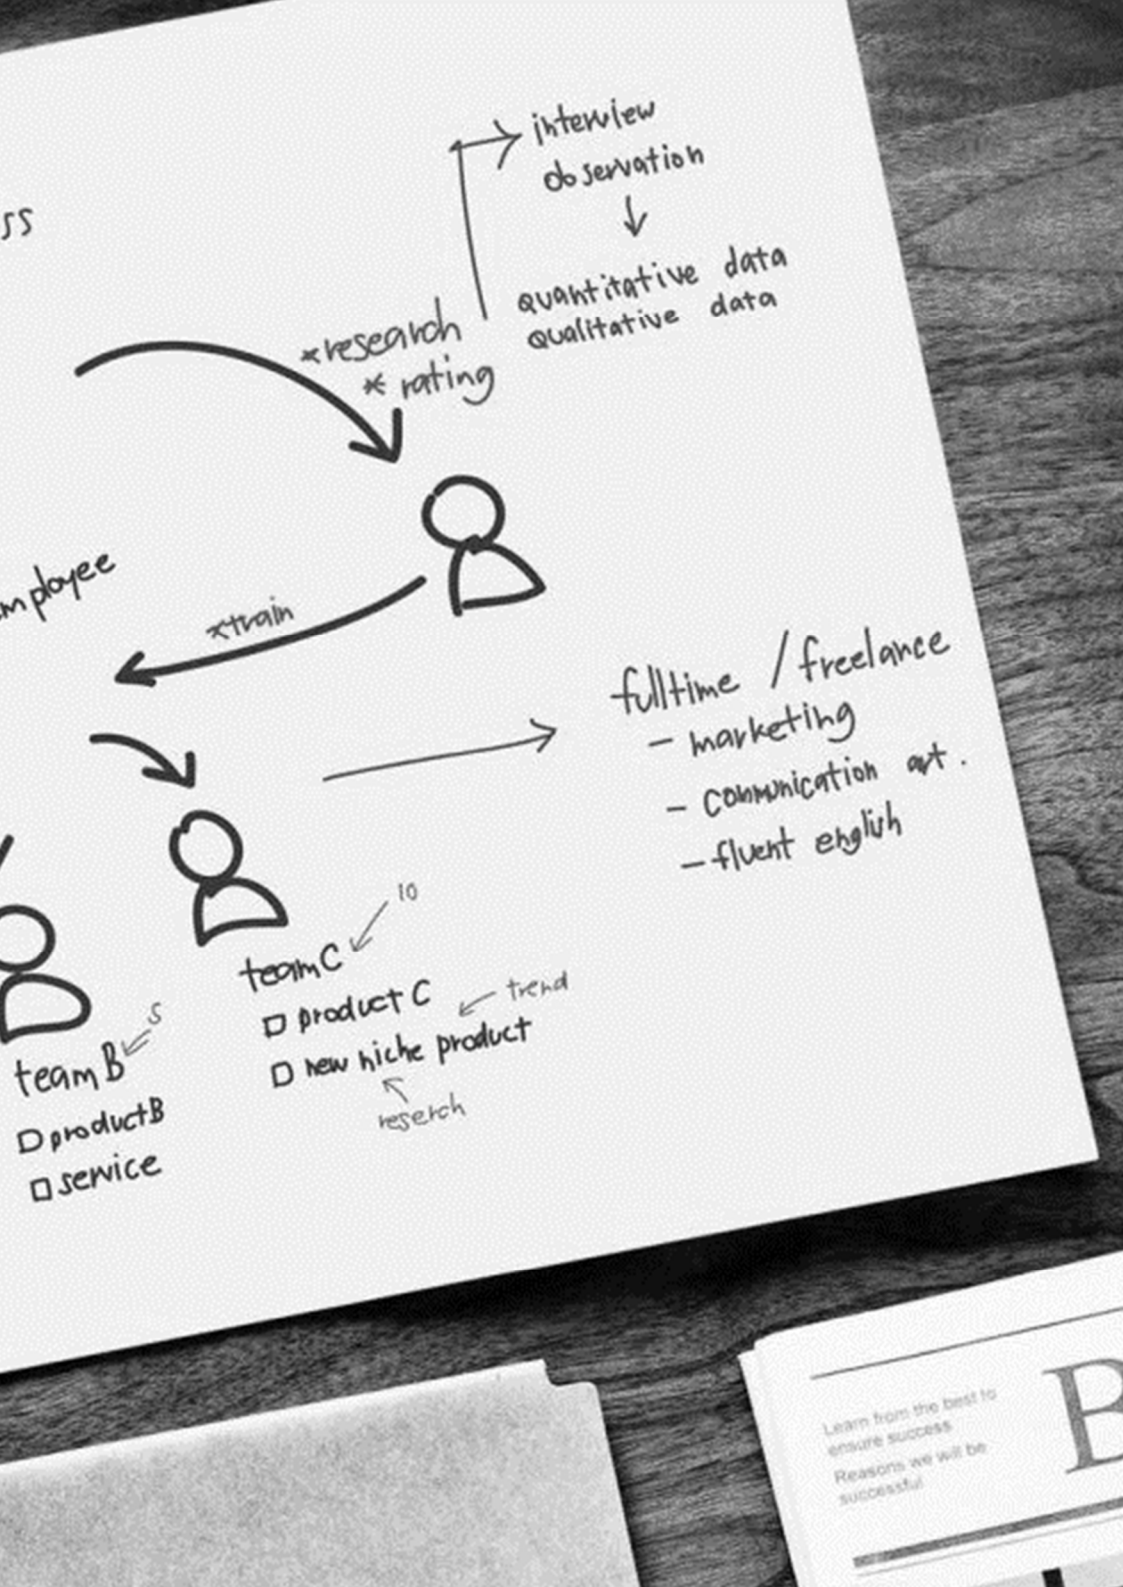 interview
observation
quantitative data
qualitative data
*research
* rating
*train
fulltime / freelance
- marketing
- communication art.
- fluent english
10
team C
product C
trend
new niche product
reserch
5
team B
product B
service
Learn from the best to
ensure success
Reasons we will be
successful
B